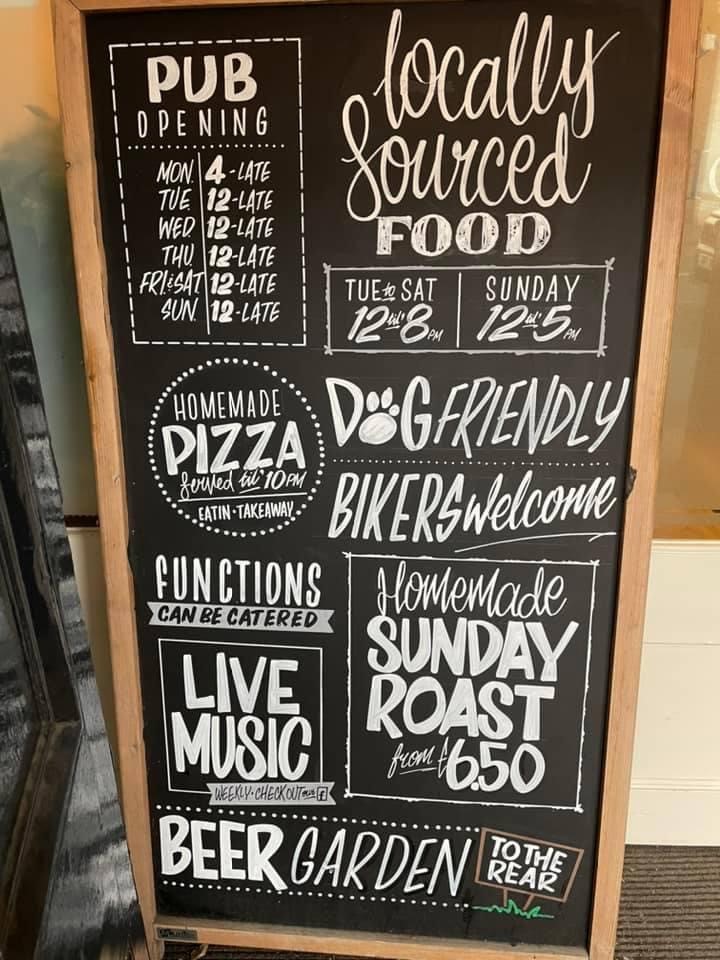 PUB
OPENING
MON 4-LATE
TUE 12-LATE
WED 12-LATE
THU 12-LATE
FRI&SAT 12-LATE
SUN 12-LATE
locally
Sourced
FOOD
TUE to SAT
12 til' 8PM
SUNDAY
12 til' 5PM
HOMEMADE
PIZZA
served til' 10PM
EATIN · TAKEAWAY
DOG FRIENDLY
BIKERS welcome
FUNCTIONS
CAN BE CATERED
LIVE
MUSIC
WEEKLY · CHECK OUT OUR f
Homemade
SUNDAY
ROAST
from £6.50
BEER GARDEN
TO THE
REAR